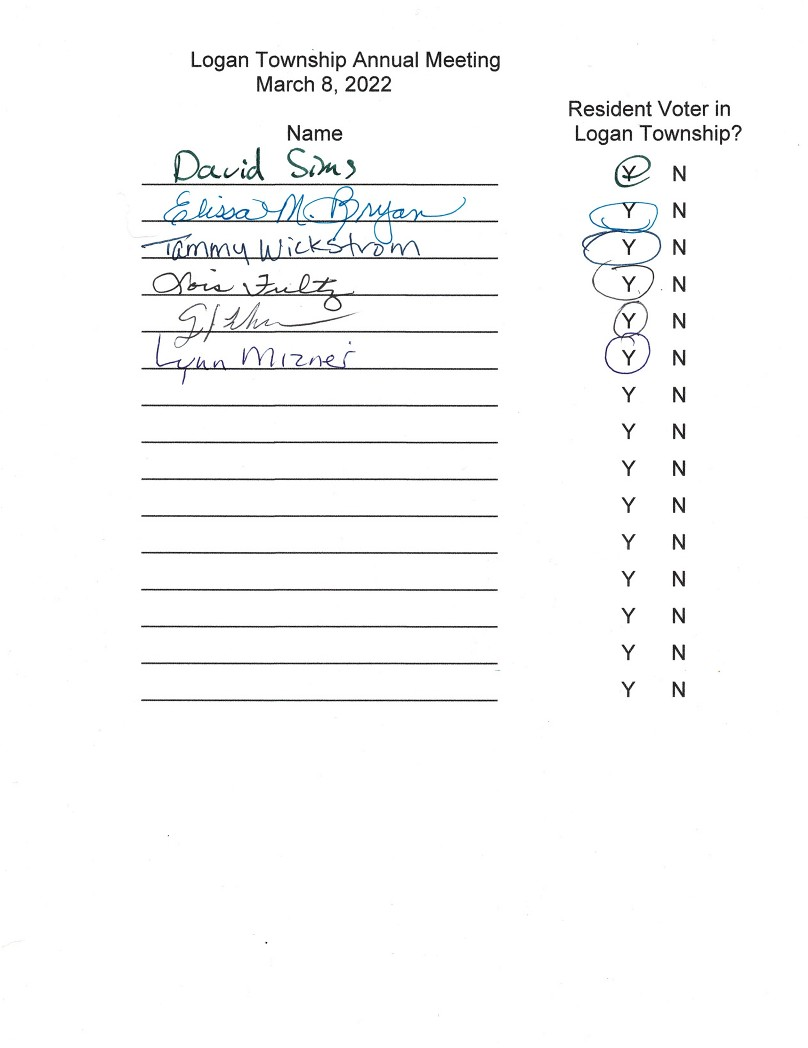 Logan Township Annual Meeting
March 8, 2022
Resident Voter in
Name Logan Township?
David Sims Y N
Elissa M. Bryan Y N
Tammy Wickstrom Y N
Lois Fultz Y N
Y N
Lynn Mizner Y N
Y N
Y N
Y N
Y N
Y N
Y N
Y N
Y N
Y N